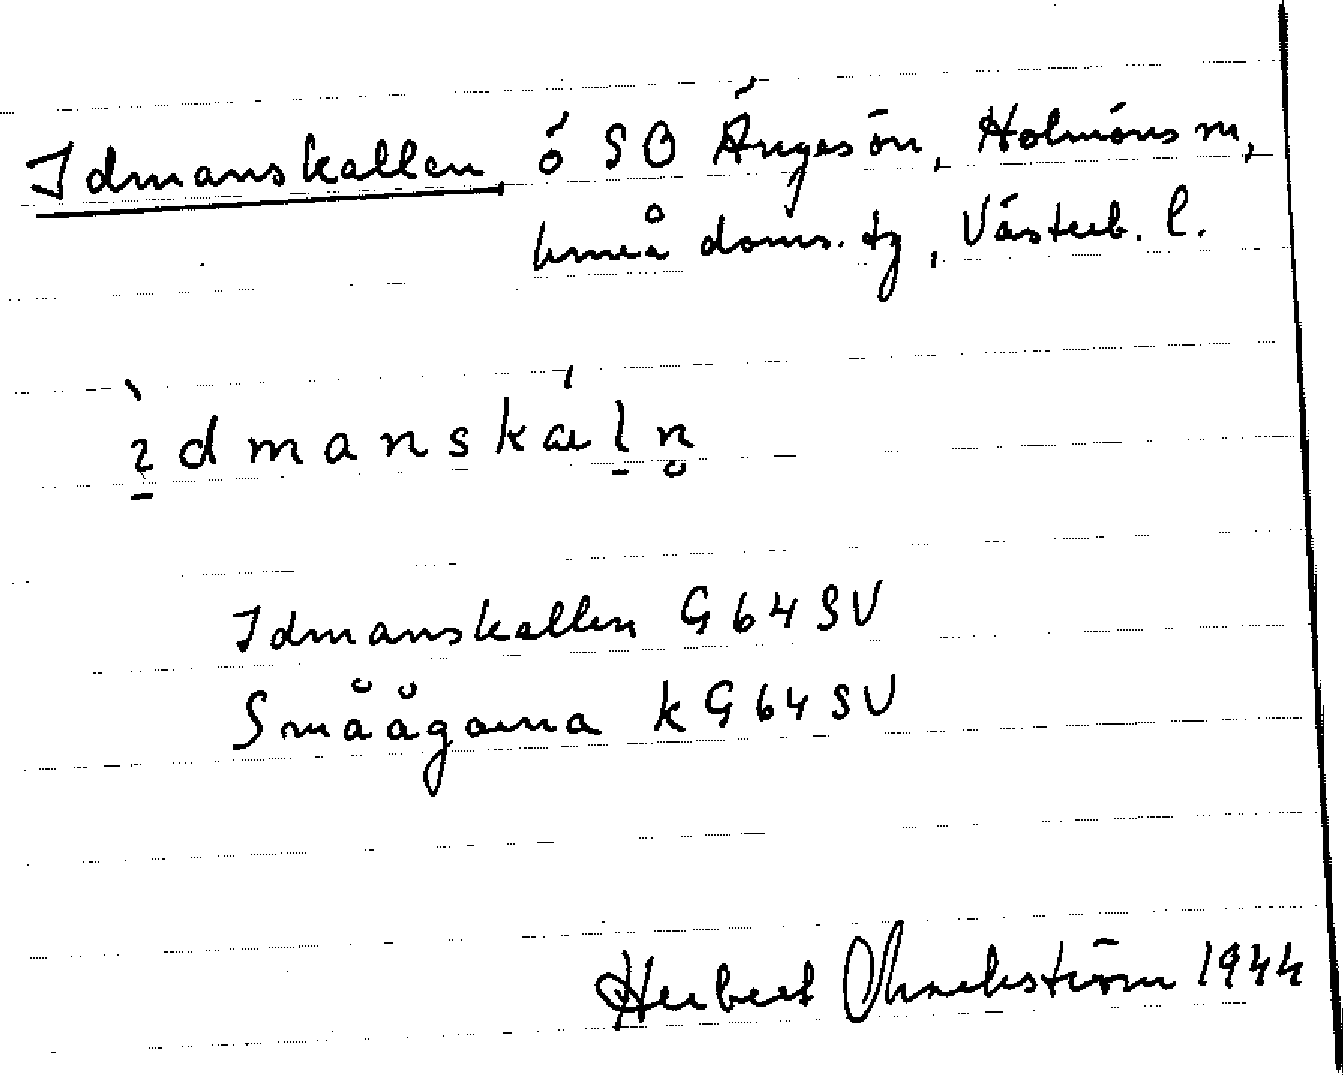 Idmanskallen ö SO Ängesön, Holmöns sn,
Umeå doms. tg, Västerb. l.
ìdmanskál̠n̥
Idmanskallen G 64 SV
Småågarna k G 64 SV
Herbert 1944